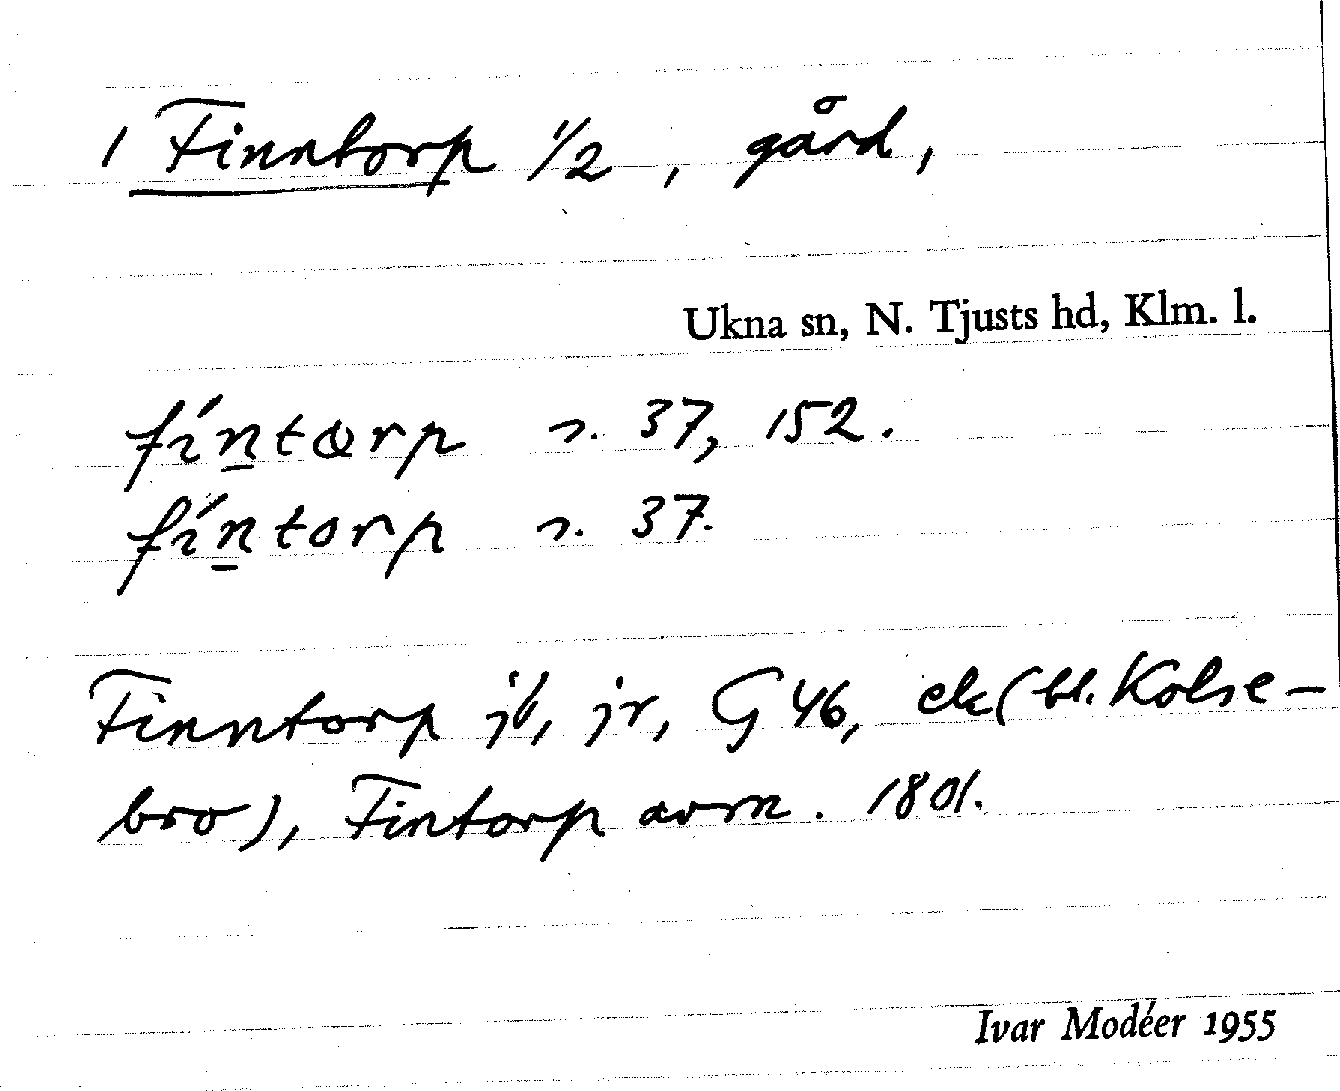 1 Finntorp 1/2, gård,
Ukna sn, N. Tjusts hd, Klm. l.
fíṉtærp n. 37, 152.
fíṉtorp n. 37.
Finntorp jb, jr, G 46, ek (bl. Kolse-
bro), Fintorp avrn. 1801.
Ivar Modéer 1955